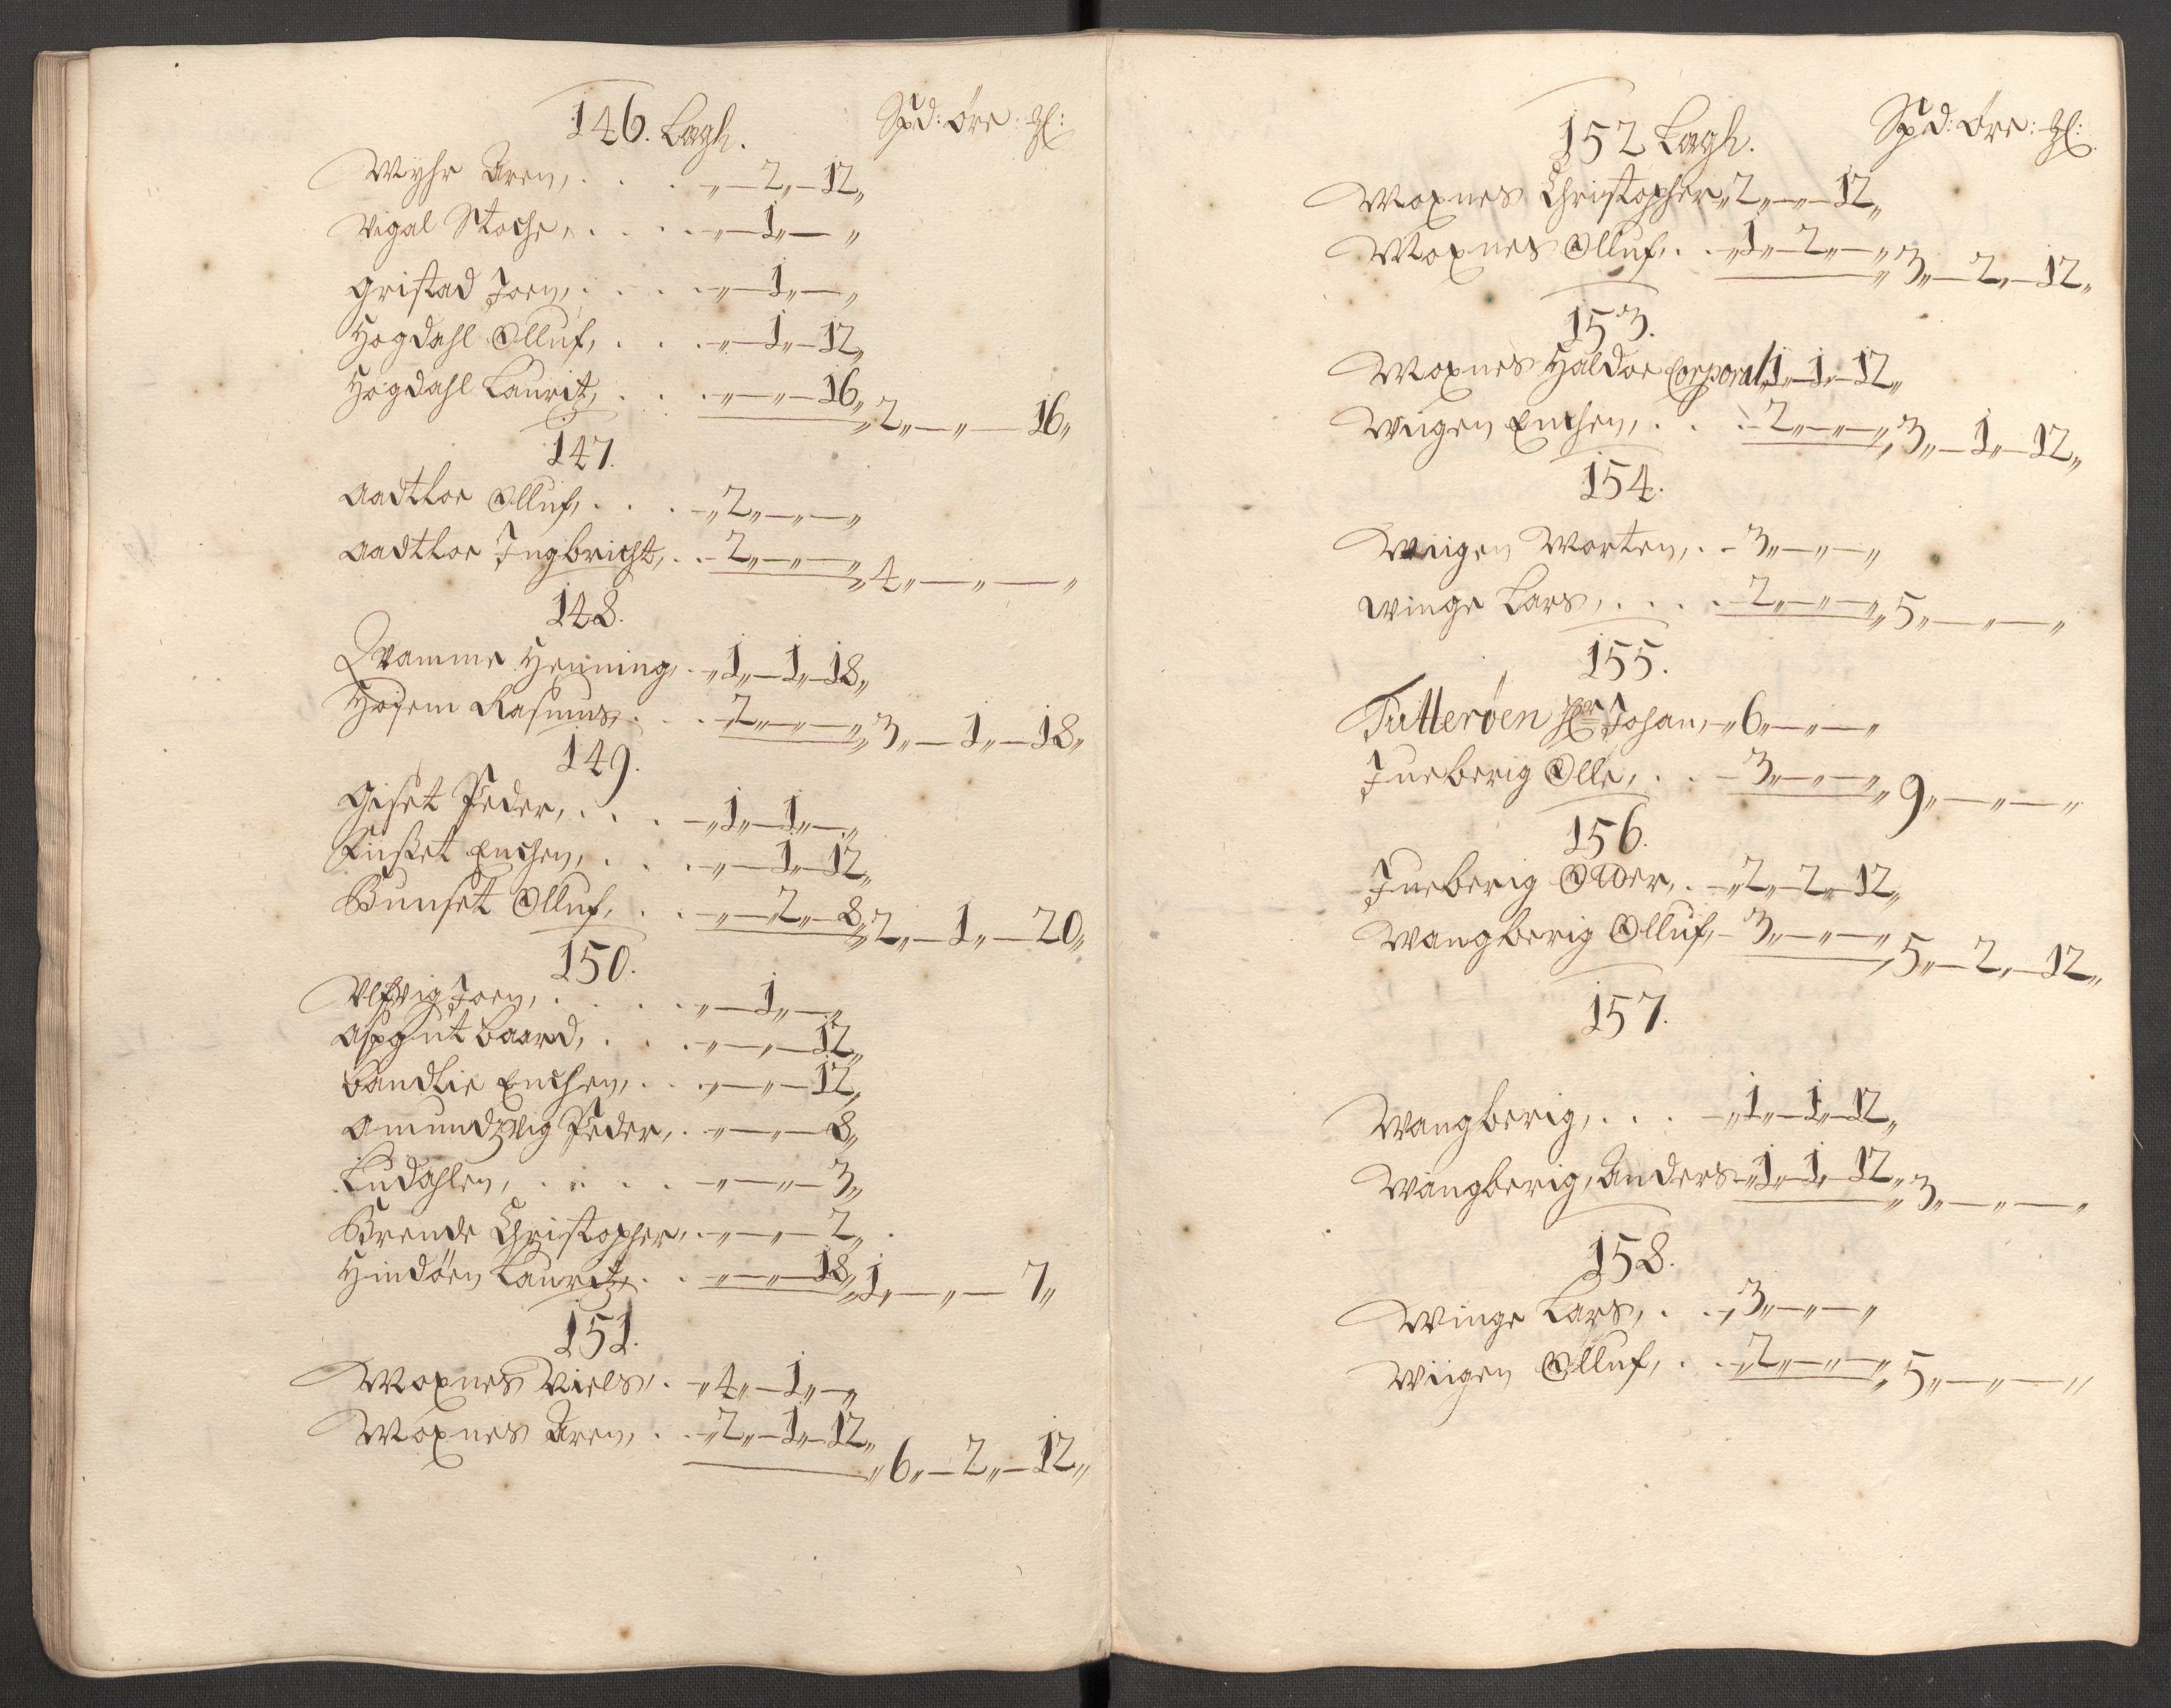 146. Lagh. Spd: öre: ʒl:
Myhr Aren, . . . „—2„—12„
Vigal Stoche, . . . . „—1„— „
Gristad Joen, . . . . „—1„—„
Hogdahl Olluf, . . . „—1„—12„
Hogdahl Lauritz, . . . „—„—16„ 2„—„—16„
147.
Aadthor Olluf, . . . „2„—„—„
Aadthor Ingbricht, . . 2„—„—„ 4„—„—„
148.
Qvamme Henning, . „1„—1„—18„
Hojem Rasmus, . . . 2„—„—„ 3„—1„—18„
149.
Giset Peder, . . . „1„—1„—„
Enchen, . . . „—1„—12„
Bunset Olluf, . . „—2„—8„ 2„—1„—20„
150.
Ulfvig Joen, . . . . „—1„—„
Aspgut Baard, . . . „—„—12„
Bandlie Enchen, . . „—„—12„
Amundzvig Peder, . „—„—8„
Ludahlen, . . . . „—„—3„
Brende Christopher, . „—„—2„
Hindöen Lauritz, . . „—„—18„ 1„—„—7„
151.
Moxnes Niels, . „4„—1„—„
Moxnes Aren, . . „2„—1„—12„ 6„—2„—12„
152 Lagh. Spd: öre: ʒl:
Moxnes Christopher, „2„—„—12„
Moxnes Olluf, . . „1„—2„—„ 3„—2„—12„
153.
Moxnes Haldor Corporal, 1„—1„—12„
Wiigen Enchen, . . . 2„—„—„ 3„—1„—12„
154.
Wiigen Morten, . 3„—„—„
Winge Lars, . . . . 2„—„—„ 5„—„—„
155.
Tutteröen Hr Johan, „6„—„—„
Jueberig Olle, . . 3„—„—„ 9„—„—„
156.
Jueberig Other, . „2„—2„—12„
Wangberig Olluf, 3„—„—„ 5„—2„—12„
157.
Wangberig, . . . „1„—1„—12„
Wangberig, Anders „1„—1„—12„ 3„—„—„
158.
Winge Lars, . . „3„—„—„
Wiigen Olluf, . . „2„—„—„ 5„—„—„